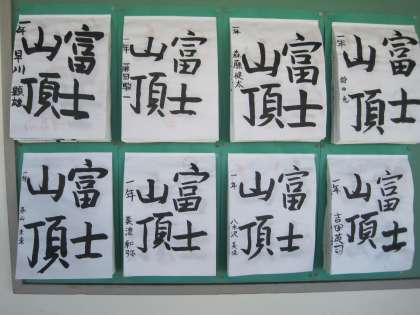 富士
山頂
一年 早川 顕雄
富士
山頂
一年
富士
山頂
一年 斎藤健太
富士
山頂
一年
富士
山頂
一年
富士
山頂
一年 美濃 和弥
富士
山頂
一年 八木沢
富士
山頂
一年 吉田英司